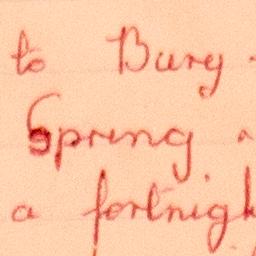 to Bury
Spring
a fortnigh